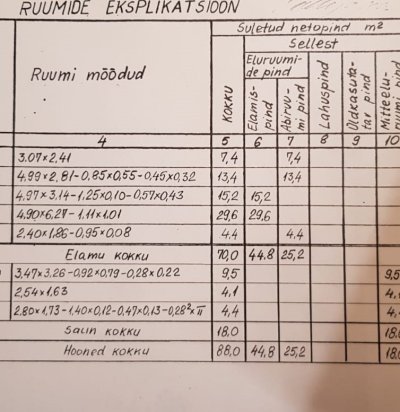 RUUMIDE EKSPLIKATSIOON
Ruumi mõõdud
Suletud netopind m2
Sellest
Eluruumi-
de pind
KOKKU
Elamis-
pind
Abiruu-
mi pind
Lahuspind
Üldkasuta-
tav pind
Mitteelu-
ruumi pind
4 5 6 7 8 9 10
3.07×2.41 7,4 7,4
4.99×2,81-0,85×0,55-0,45×0,32 13,4 13,4
4.97×3.14-1,25×0,10-0,57×0,43 15,2 15,2
4.90×6.27-1,11×1.01 29,6 29,6
2.40×1,86-0,95×0,08 4.4 4.4
Elamu kokku 70,0 44.8 25,2
3,47×3.26-0,92×0.79-0,28×0.22 9,5 9,5
2,54×1,63 4,1 4,
2.80×1,73-1.40×0,12-0,47×0,13-0,28²×π 4,4 4,
Salin kokku 18,0 18,
Hooned kokku 88,0 44,8 25,2 18,